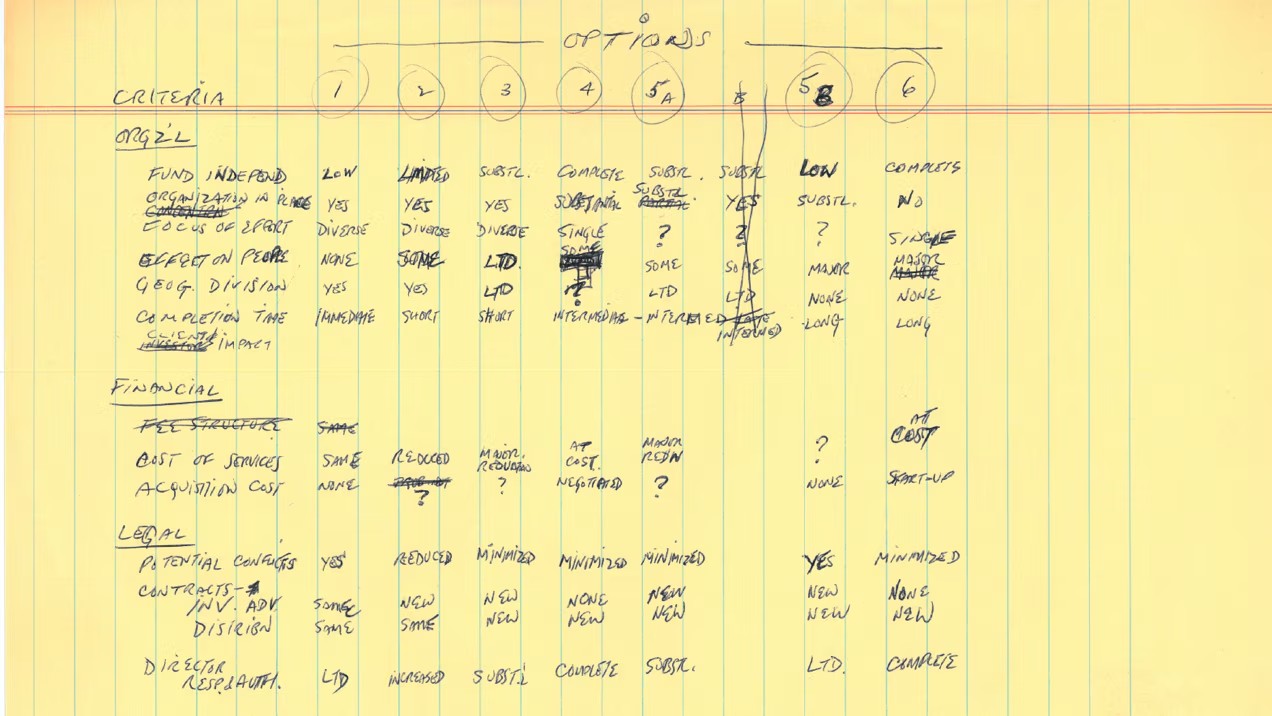 OPTIONS
CRITERIA 1 2 3 4 5A B 5B 6
ORGZ'L
FUND INDEPEND LOW LIMITED SUBSTL. COMPLETE SUBSTL. SUBSTL LOW COMPLETE
ORGANIZATION IN PLACE YES YES YES SUBSTANTIAL SUBSTL PARTIAL YES SUBSTL. NO
FOCUS OF EFFORT DIVERSE DIVERSE DIVERSE SINGLE ? ? ? SINGLE
EFFECT ON PEOPLE NONE SOME LTD. SOME SOME SOME MAJOR MAJOR
GEOG. DIVISION YES YES LTD ? LTD LTD NONE NONE
COMPLETION TIME IMMEDIATE SHORT SHORT INTERMEDIATE - INTERMED INTERMED LONG LONG
CLIENT
INVESTOR IMPACT
FINANCIAL
FEE STRUCTURE SAME
COST OF SERVICES SAME REDUCED MAJOR REDUCTION AT COST. MAJOR REDN ? AT COST
ACQUISITION COST NONE ? ? NEGOTIATED ? NONE START-UP
LEGAL
POTENTIAL CONFLICTS YES REDUCED MINIMIZED MINIMIZED MINIMIZED YES MINIMIZED
CONTRACTS-
INV. ADV. SAME NEW NEW NONE NEW NEW NONE
DISTRIBN SAME SAME NEW NEW NEW NEW NEW
DIRECTOR
RESP. & AUTH. LTD INCREASED SUBST'L COMPLETE SUBSTL. LTD. COMPLETE